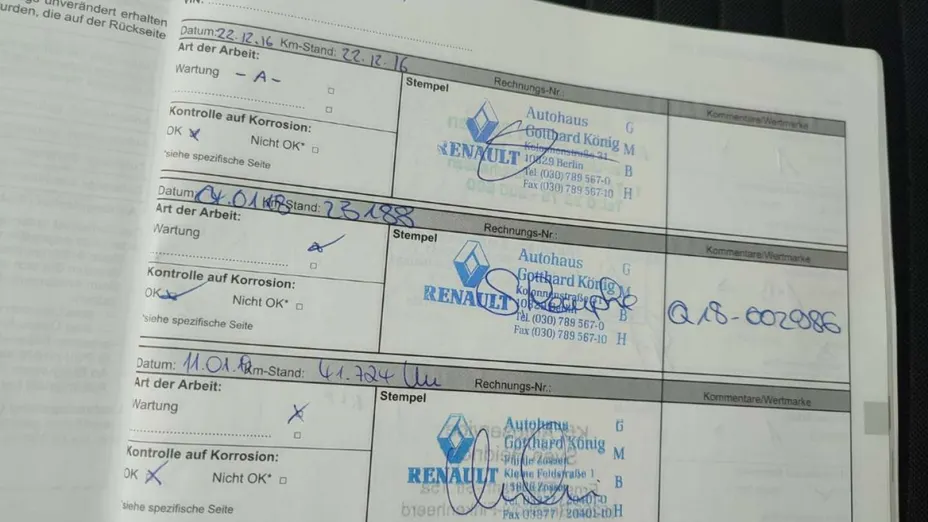 unverändert erhalten
urden, die auf der Rückseite
Datum: 22.12.16 Km-Stand: 22.12.16
Art der Arbeit:
Wartung - A -
Stempel
Rechnungs-Nr.:
Kommentare/Wertmarke
Kontrolle auf Korrosion:
OK x Nicht OK*
*siehe spezifische Seite
RENAULT
Autohaus G
Gotthard König M
Kolonnenstraße 31
10829 Berlin B
Tel. (030) 789 567-0
Fax (030) 789 567-10 H
Datum: 01.18 Km-Stand: 23188
Art der Arbeit:
Wartung
Stempel
Rechnungs-Nr.:
Kommentare/Wertmarke
Kontrolle auf Korrosion:
OK Nicht OK*
*siehe spezifische Seite
RENAULT
Autohaus G
Gotthard König M
Kolonnenstraße 31
10829 Berlin B
Tel. (030) 789 567-0
Fax (030) 789 567-10 H
Q18-002986
Datum: 11.01. Km-Stand: 41.724
Art der Arbeit:
Wartung x
Stempel
Rechnungs-Nr.:
Kommentare/Wertmarke
Kontrolle auf Korrosion:
OK x Nicht OK*
*siehe spezifische Seite
RENAULT
Autohaus G
Gotthard König M
Kleine Feldstraße 1
B
20401-0
20401-10 H